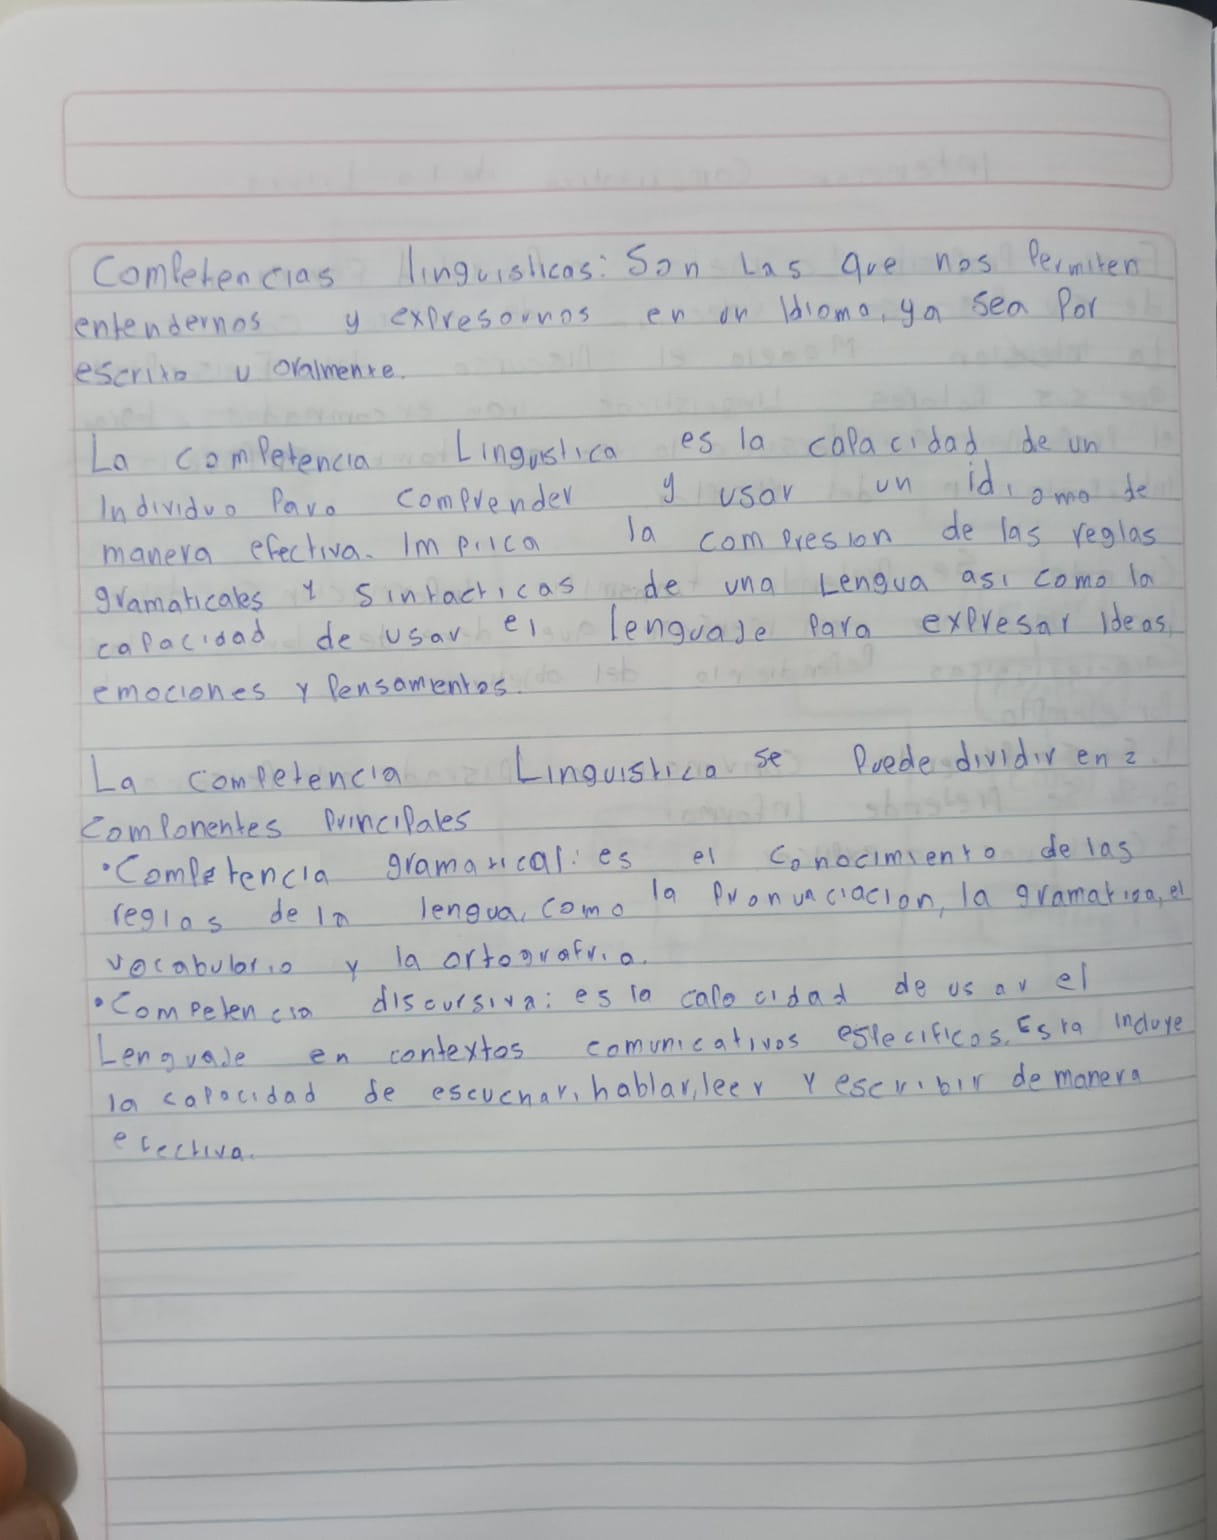 Competencias linguisticas: Son Las que nos Permiten
entendernos y expresarnos en un Idioma, ya sea Por
escrito u oralmente.
La competencia Linguistica es la capacidad de un
Individuo Para comprender y usar un idioma de
manera efectiva. Implica la compresion de las reglas
gramaticales y sintacticas de una Lengua asi como la
capacidad de usar el lenguaje Para expresar Ideas,
emociones y Pensamentos.
La competencia Linguistica se Puede dividir en 2
componentes Principales
• Competencia gramatical: es el conocimiento de las
reglas de la lengua, como la Pronunciacion, la gramatica, el
vocabulario y la ortografria.
• Competencia discursiva: es la capacidad de usar el
Lenguaje en contextos comunicativos especificos. Esta incluye
la capacidad de escuchar, hablar, leer y escribir de manera
efectiva.